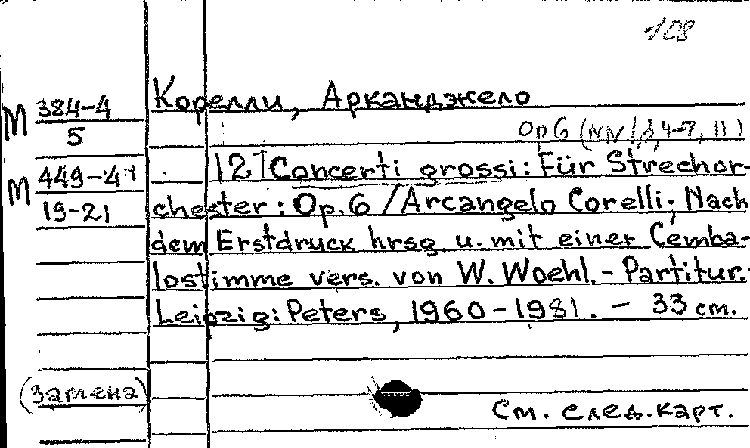 108
Корелли, Арканджело
М 384-4
5
Op 6 (NN 1, 4-7, 11)
М 449-4
19-21
[12] Concerti grossi: Für Strechor-
chester: Op. 6 / Arcangelo Corelli; Nach
dem Erstdruck hrsg u. mit einer Cemba-
lostimme vers. von W. Woehl. - Partitur. -
Leipzig: Peters, 1960-1981. - 33 cm.
(Замена)
См. след. карт.